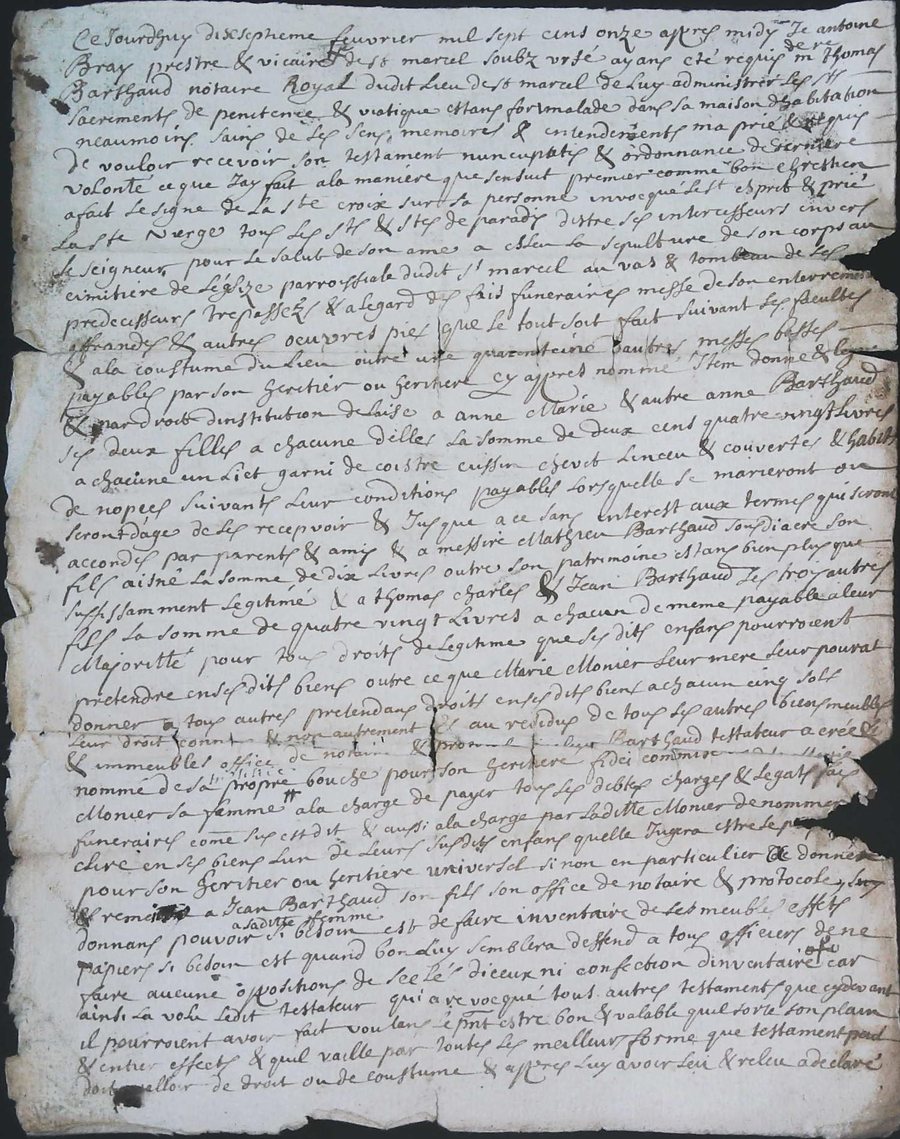 Ce Jourdhuy dixseptieme feuvrier mil sept cens onze appres midy Je antoine
Bray prestre & vicaire de st marcel soubz ursé ayans eté requis de me thomas
Barthaud notaire Royal dudit Lieu de st marcel de Luy administrer Les sts
sacrements de penitence & viatique estans fort malade dans sa maison dhabitation
neaumoins sains de ses sens memoires & entendements ma prié & requis
de vouloir recevoir son testament nuncupatif & ordonnance de derniere
volonte ce que Jay fait a la maniere que sensuit premier comme bon chrestien
a fait Le signe de La ste croix sur sa personne invocqué Le st esprit & prié
La ste vierge tous Les sts & stes de paradis destre ses intercesseurs envers
Le seigneur pour Le salut de son ame a esleu La sepulture de son corps au
cimitiere de Léglize parrossiale dudit st marcel au vas & tombeau de ses
predecesseurs trespassez & a legard des fais funeraires messe de son enterrement
offrandes & autres oeuvres pies que le tout soit fait suivant ses facultes
& a la coustume du Lieu outre une quaranteine dautres messes basses
payables par son heritier ou heritiere cy appres nommé Item donne & legue
& par droit dinstitution delaisse a anne Marie & autre anne Barthaud
ses deux filles a chacune dilles La somme de deux cens quatre vingt Livres
a chacune un Lict garni de coistre cussin chevet Linceu & couvertes & habits
de nopces suivants Leur conditions payables Lorsquelle se marieront ou
seront dage de Les recepvoir & Jusque a ce sans interest aux termes qui seront
accordes par parents & amis & a messire Mathieu Barthaud sousdiacre son
fils aisné La somme de dix Livres outre son patrimoine estans bien plus que
suffissamment Legitimé & a thomas charles & Jean Barthaud Les trois autres
fils La somme de quatre vingt Livres a chacun de meme payable a leur
Majorité pour tous droits de Legitime que ses dits enfans pourroient
pretendre en ses dits biens outre ce que Marie Monier Leur mere Leur pourat
donner a tous autres pretendans droits en ses dits biens a chacun cinq sols
Leur droit connu & non autrement & au residus de tous ses autres biens meubles
& immeubles office de notaire & Barthaud testateur a créé &
nommé de sa propre bouche pour son heritiere fidei commise
Monier sa femme a la charge de payer tous ses debtes charges & Legats fais
funeraires come sus est dit & aussi a la charge par Ladite Monier de nommer
en ses biens Lun de Leurs susdits enfans quelle Jugera estre
pour son heritier ou heritiere universel si non en particulier de donner
& remettre a Jean Barthaud son fils son office de notaire & protocoles
a sadite femme
donnans pouvoir si besoin est de faire inventaire de ses meubles effets
papiers si besoin est quand bon Luy semblera deffend a tous officiers de ne
faire aucune oppositions de seelés diceux ni confection dinventaire car
ainsi La volu Ledit testateur qui a revocqué tous autres testaments que cy devant
il pourroient avoir fait voulans Le pnt estre bon & valable quil sorte son plain
& entier effects & quil vaille par toutes Les meilleur forme que testament peut
doit valloir de droit ou de coustume & appres Luy avoir Leu & releu a declaré